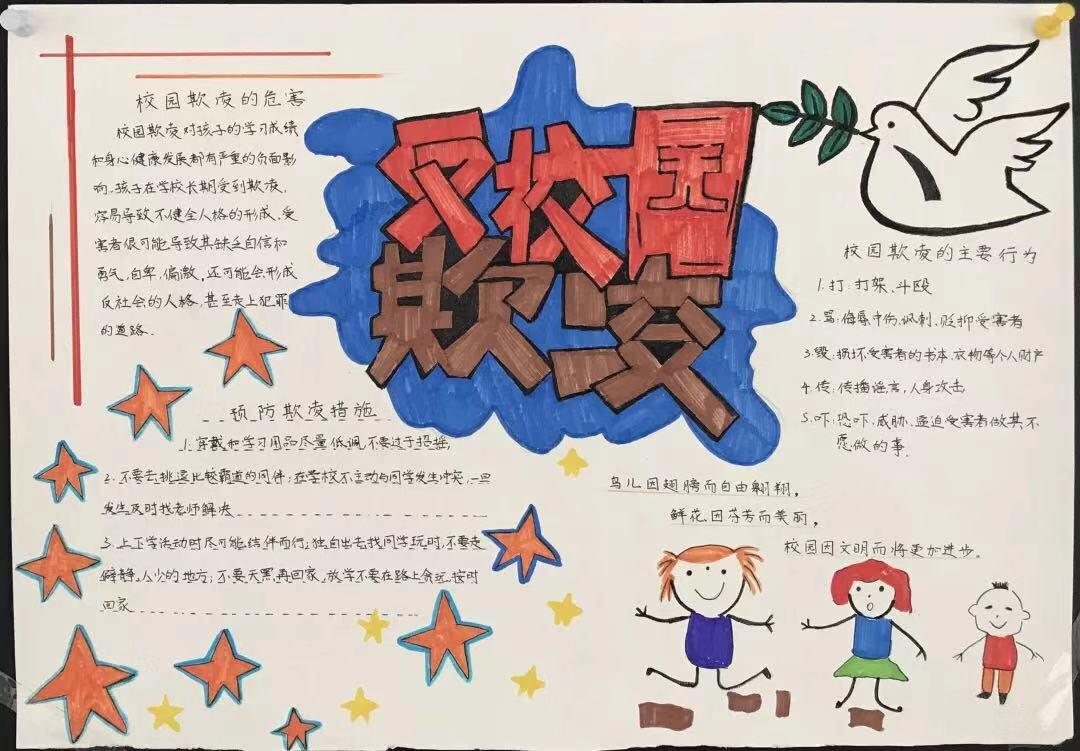 校园欺凌的危害
校园欺凌对孩子的学习成绩
和身心健康发展都有严重的负面影
响.孩子在学校长期受到欺凌,
容易导致不健全人格的形成.受
害者很可能导致其缺乏自信和
勇气,自卑,偏激,还可能会形成
反社会的人格.甚至走上犯罪
的道路.
校园
欺凌
校园欺凌的主要行为
1.打:打架、斗殴
2.骂:侮辱中伤、讽刺、贬抑受害者
3.毁:损坏受害者的书本、衣物等个人财产
4.传:传播谣言,人身攻击
5.吓:恐吓、威胁、逼迫受害者做其不
愿做的事.
预防欺凌措施
1.穿戴和学习用品尽量低调,不要过于招摇,
2.不要去挑逗比较霸道的同伴;在学校不主动与同学发生冲突,一旦
发生及时找老师解决
3.上下学活动时尽可能结伴而行;独自出去找同学玩时,不要走
僻静,人少的地方;不要天黑再回家,放学不要在路上贪玩,按时
回家
鸟儿因翅膀而自由翱翔,
鲜花因芬芳而美丽,
校园因文明而将更加进步。